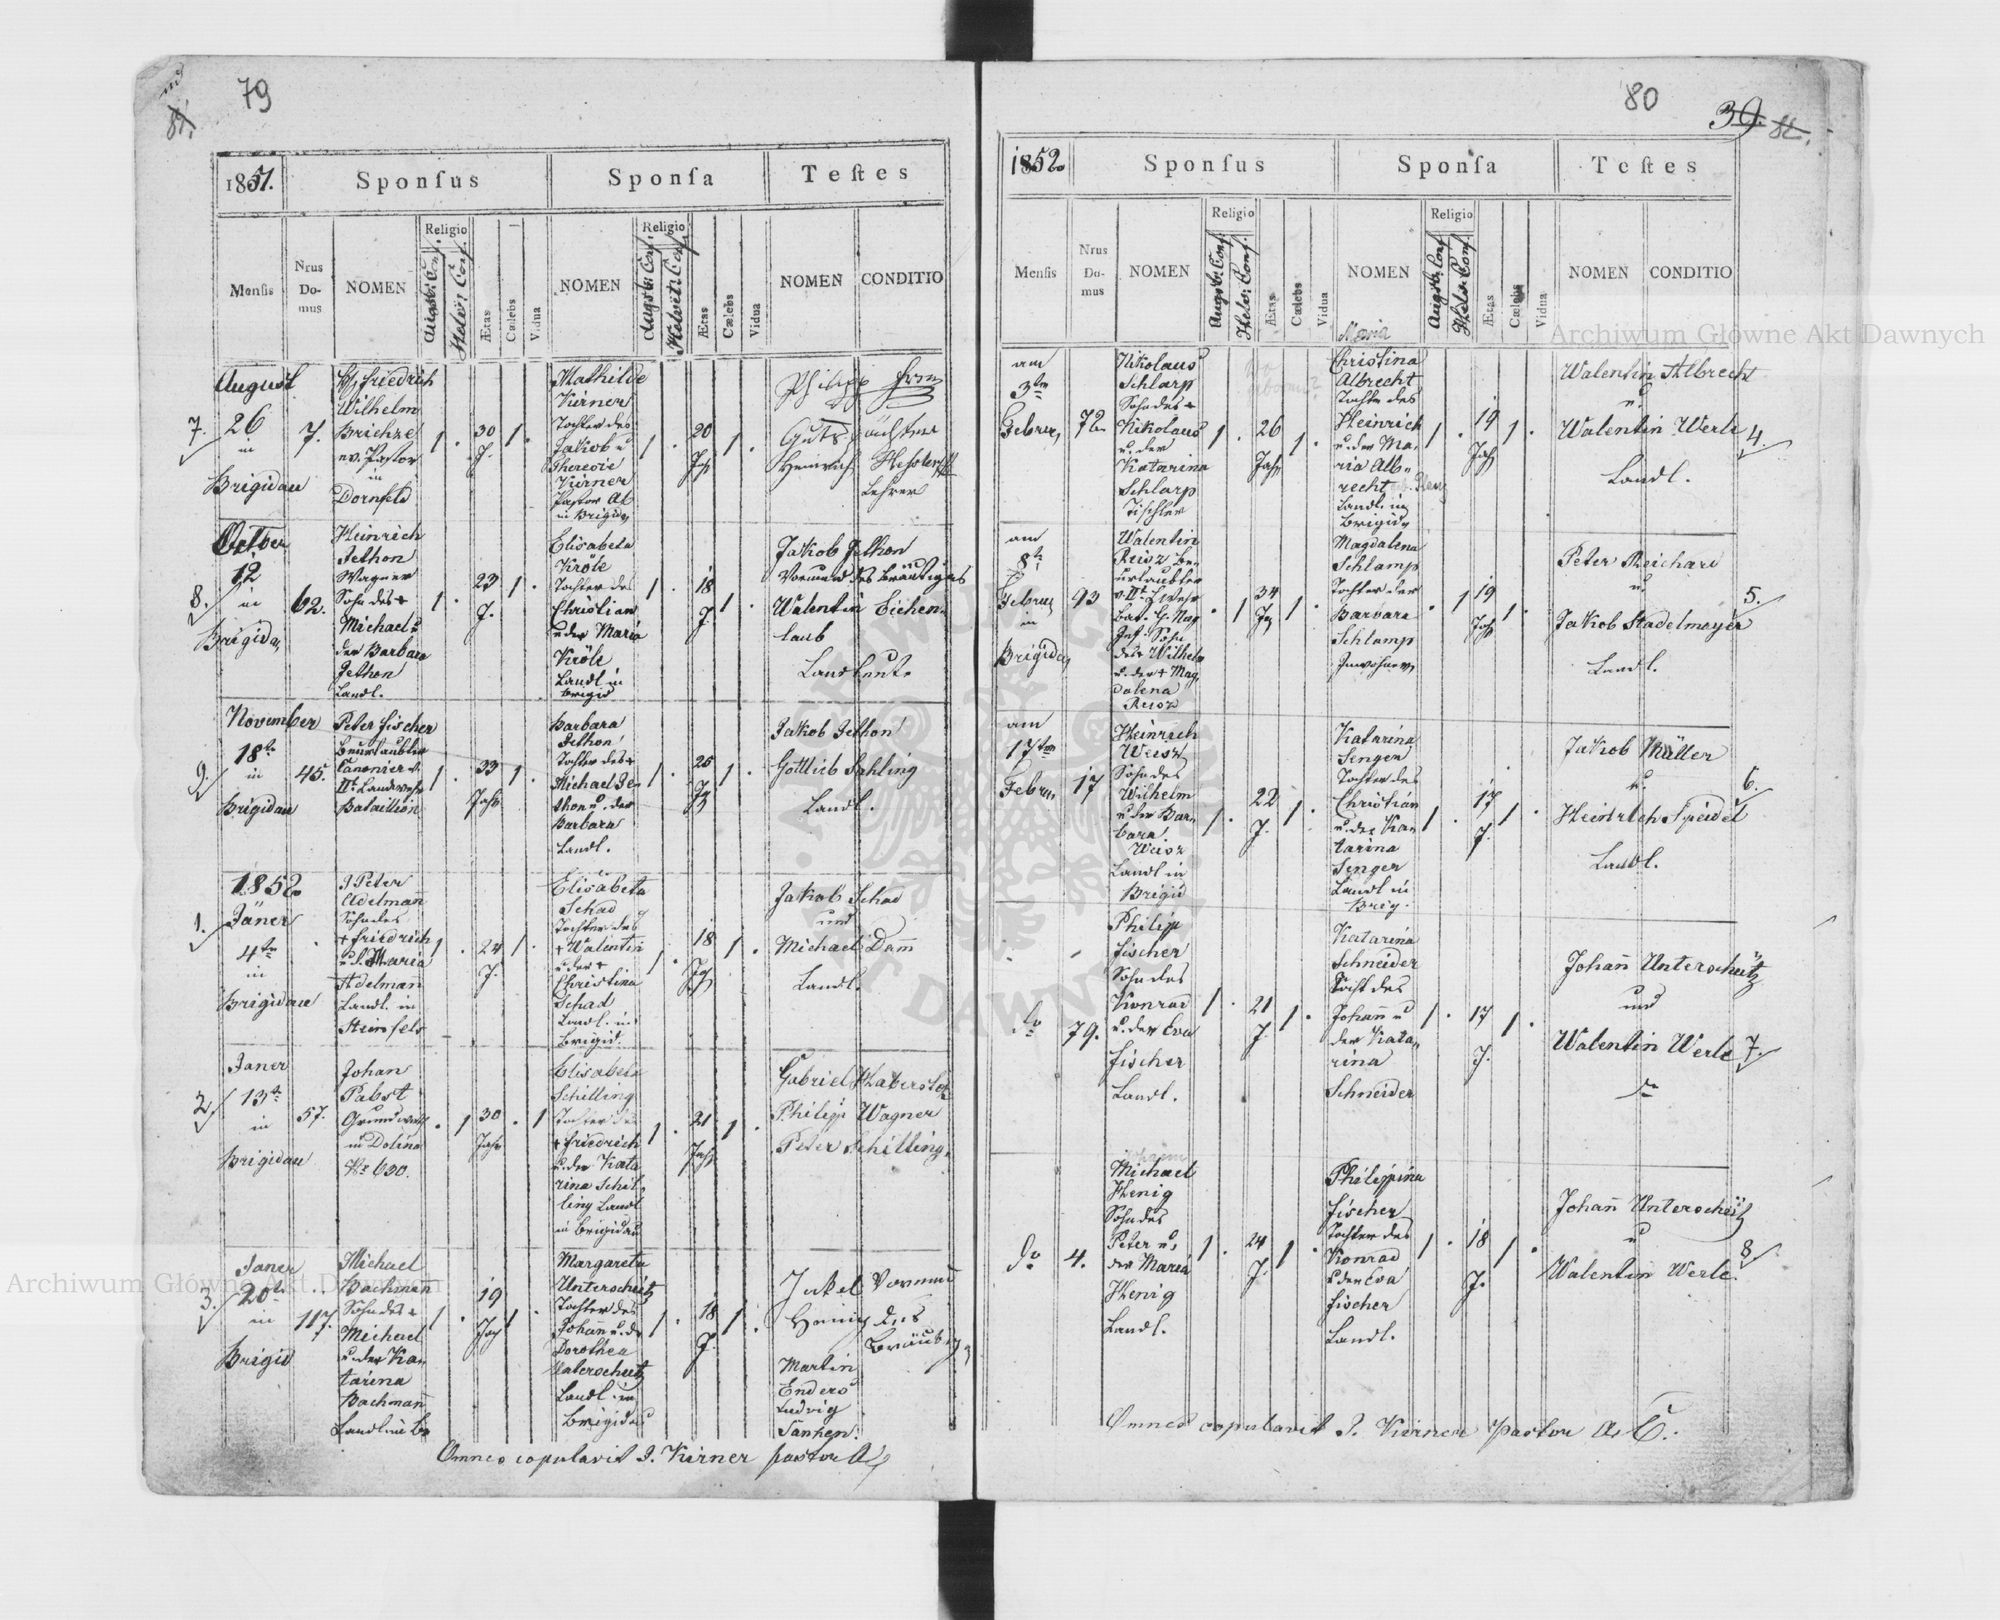 79
1851.
Sponſus
Sponſa
Teſtes
Menſis
Nrus Do-mus
NOMEN
Religio
Augsb: Conf.
Helv: Conf.
Ætas
Cœlebs
Vidua
NOMEN
Religio
Augsb: Conf.
Helvet: Conf.
Ætas
Cœlebs
Vidua
NOMEN
CONDITIO
August
7.
26
in
Brigidau
7.
Friedrich
Wilhelm
ev. Pastor
in
Dornfeld
1 .
30
J.
1 .
Mathilde
Kirner
Tochter des
Jakob u
Theresie
Kirner
Pastor AC
in Brigid
1 .
20
1 .
Philipp
Gutspächter
Heinrich
Lehrer
October
8.
12
in
Brigida
62.
Heinrich
Jethon
Wagner
Sohn des +
Michael u
der Barbara
Jethon
Landl.
1 .
23
J.
1 .
Elisabeta
Kröle
Tochter des
Christian
u der Maria
Kröle
Landl in
Brigid
1 .
18
J.
1 .
Jakob Jethon
Vormund des Bräutigas
Walentin Eichen-
laub
Landleute
November
9.
18te
in
Brigidau
45.
Peter Fischer
Beurlaubter
Canonier v.
IIt Landwehr
Bataillion
1 .
33
Jahr
1 .
Barbara
Jethon
Tochter des +
Michael Je-
thon u. der
Barbara
Landl.
1 .
25
1 .
Jakob Jethon
Gottlieb Sahling
Landl.
1852
1.
Jäner
4te
in
Brigidau
J Peter
Adelman̄
Sohn des
+ Friedrich
u d. Maria
Adelman
Landl. in
Steinfels
1 .
24
J.
1 .
Elisabeta
Schad
Tochter des
+ Walentin
u der +
Christina
Schad
Landl. in
Brigid.
1 .
18
1 .
Jakob Schad
und
Michael Dam̄
Landl.
Janer
2.
13te
in
Brigidau
57.
Johan
Pabst
Grundwirth
in Dolina
Nr 600.
. 1
30
Jahr
. 1
Elisabeta
Schilling
Tochter des
+ Friedrich
u. der Kata
rina Schil
ling Landl
in Brigidau
1 .
21
Jahr
1 .
Philipp Wagner
Peter Schilling.
Janer
3.
20te
in
Brigid
117.
Michael
Bachman
Sohn des +
Michael
u der Ka-
tarina
Bachman̄
1 .
19
1 .
Margareta
Unterscheitz
Tochter des
Johan̄ u. d.
Dorothea
Unterscheitz
Landl. in
Brigidau
1 .
18
J.
1 .
Vormund
Henig des
Martin
Enders
Ludvig
Omnes copulavit J. Kirner pastor AC
80
39.
1852
Sponſus
Sponſa
Teſtes
Menſis
Nrus Do-mus
NOMEN
Religio
Augsb: Conf.
Helv: Conf.
Ætas
Cœlebs
Vidua
NOMEN
Religio
Augsb: Conf
Helv: Conf.
Ætas
Cœlebs
Vidua
NOMEN
CONDITIO
am
3ten
72
Nikolaus
Schlarp
Sohn des +
Nikolaus
u. der
Katarina
Schlarp
Tischler
1 .
26
Jahr
1 .
Maria
Christina
Albrecht
Tochter des
Heinrich
u. der Ma-
ria Alb-
recht
Landl. in
Brigid
1 .
19
1 .
Walentin Albrecht
u.
Walentin Werle
Landl.
4.
am
8te
in
Brigidau
93
Walentin
Reisz Be-
urlaubter
des Wilhelm
u. der + Mag
dalena
Reisz
. 1
34
1 .
Magdalena
Schlamp
Tochter der
Barbara
Schlamp
. 1
19
1 .
Peter Reichard
u.
Jakob Stadelmayer
Landl.
5.
am
17ten
Febru
17
Heinrich
Weisz
Sohn des
Wilhelm
u der Bar-
bara.
Weisz
Landl in
Brigid
1 .
22
J.
1 .
Katarina
Senger
Tochter des
Christian
u. der Ka-
tarina
Senger
Landl in
Brig.
1 .
17
J.
1 .
Jakob Müller
u.
Heinrich Speidel
Landl.
6.
do
79.
Philip
Fischer
Sohn des
Konrad
u. der Eva
Fischer
Landl.
1 .
21
J.
1 .
Katarina
Schneider
Tocht des
Johan̄ u
der Kata-
rina
Schneider
1 .
17
J.
1 .
Johan̄ Unterscheitz
und
Walentin Werle
7.
do
4.
Michael
Henig
Sohn des
Peter u.
der Maria
Henig
Landl.
1 .
24
J.
1 .
Philippina
Fischer
Tochter des
Konrad
u der Eva
Fischer
Landl.
1 .
18
J.
1 .
Johan̄ Unterscheitz
u
Walentin Werle.
8
Omnes copulavit J. Kirner Pastor A. C.
Archiwum Główne Akt Dawnych
Archiwum Główne Akt Dawnych